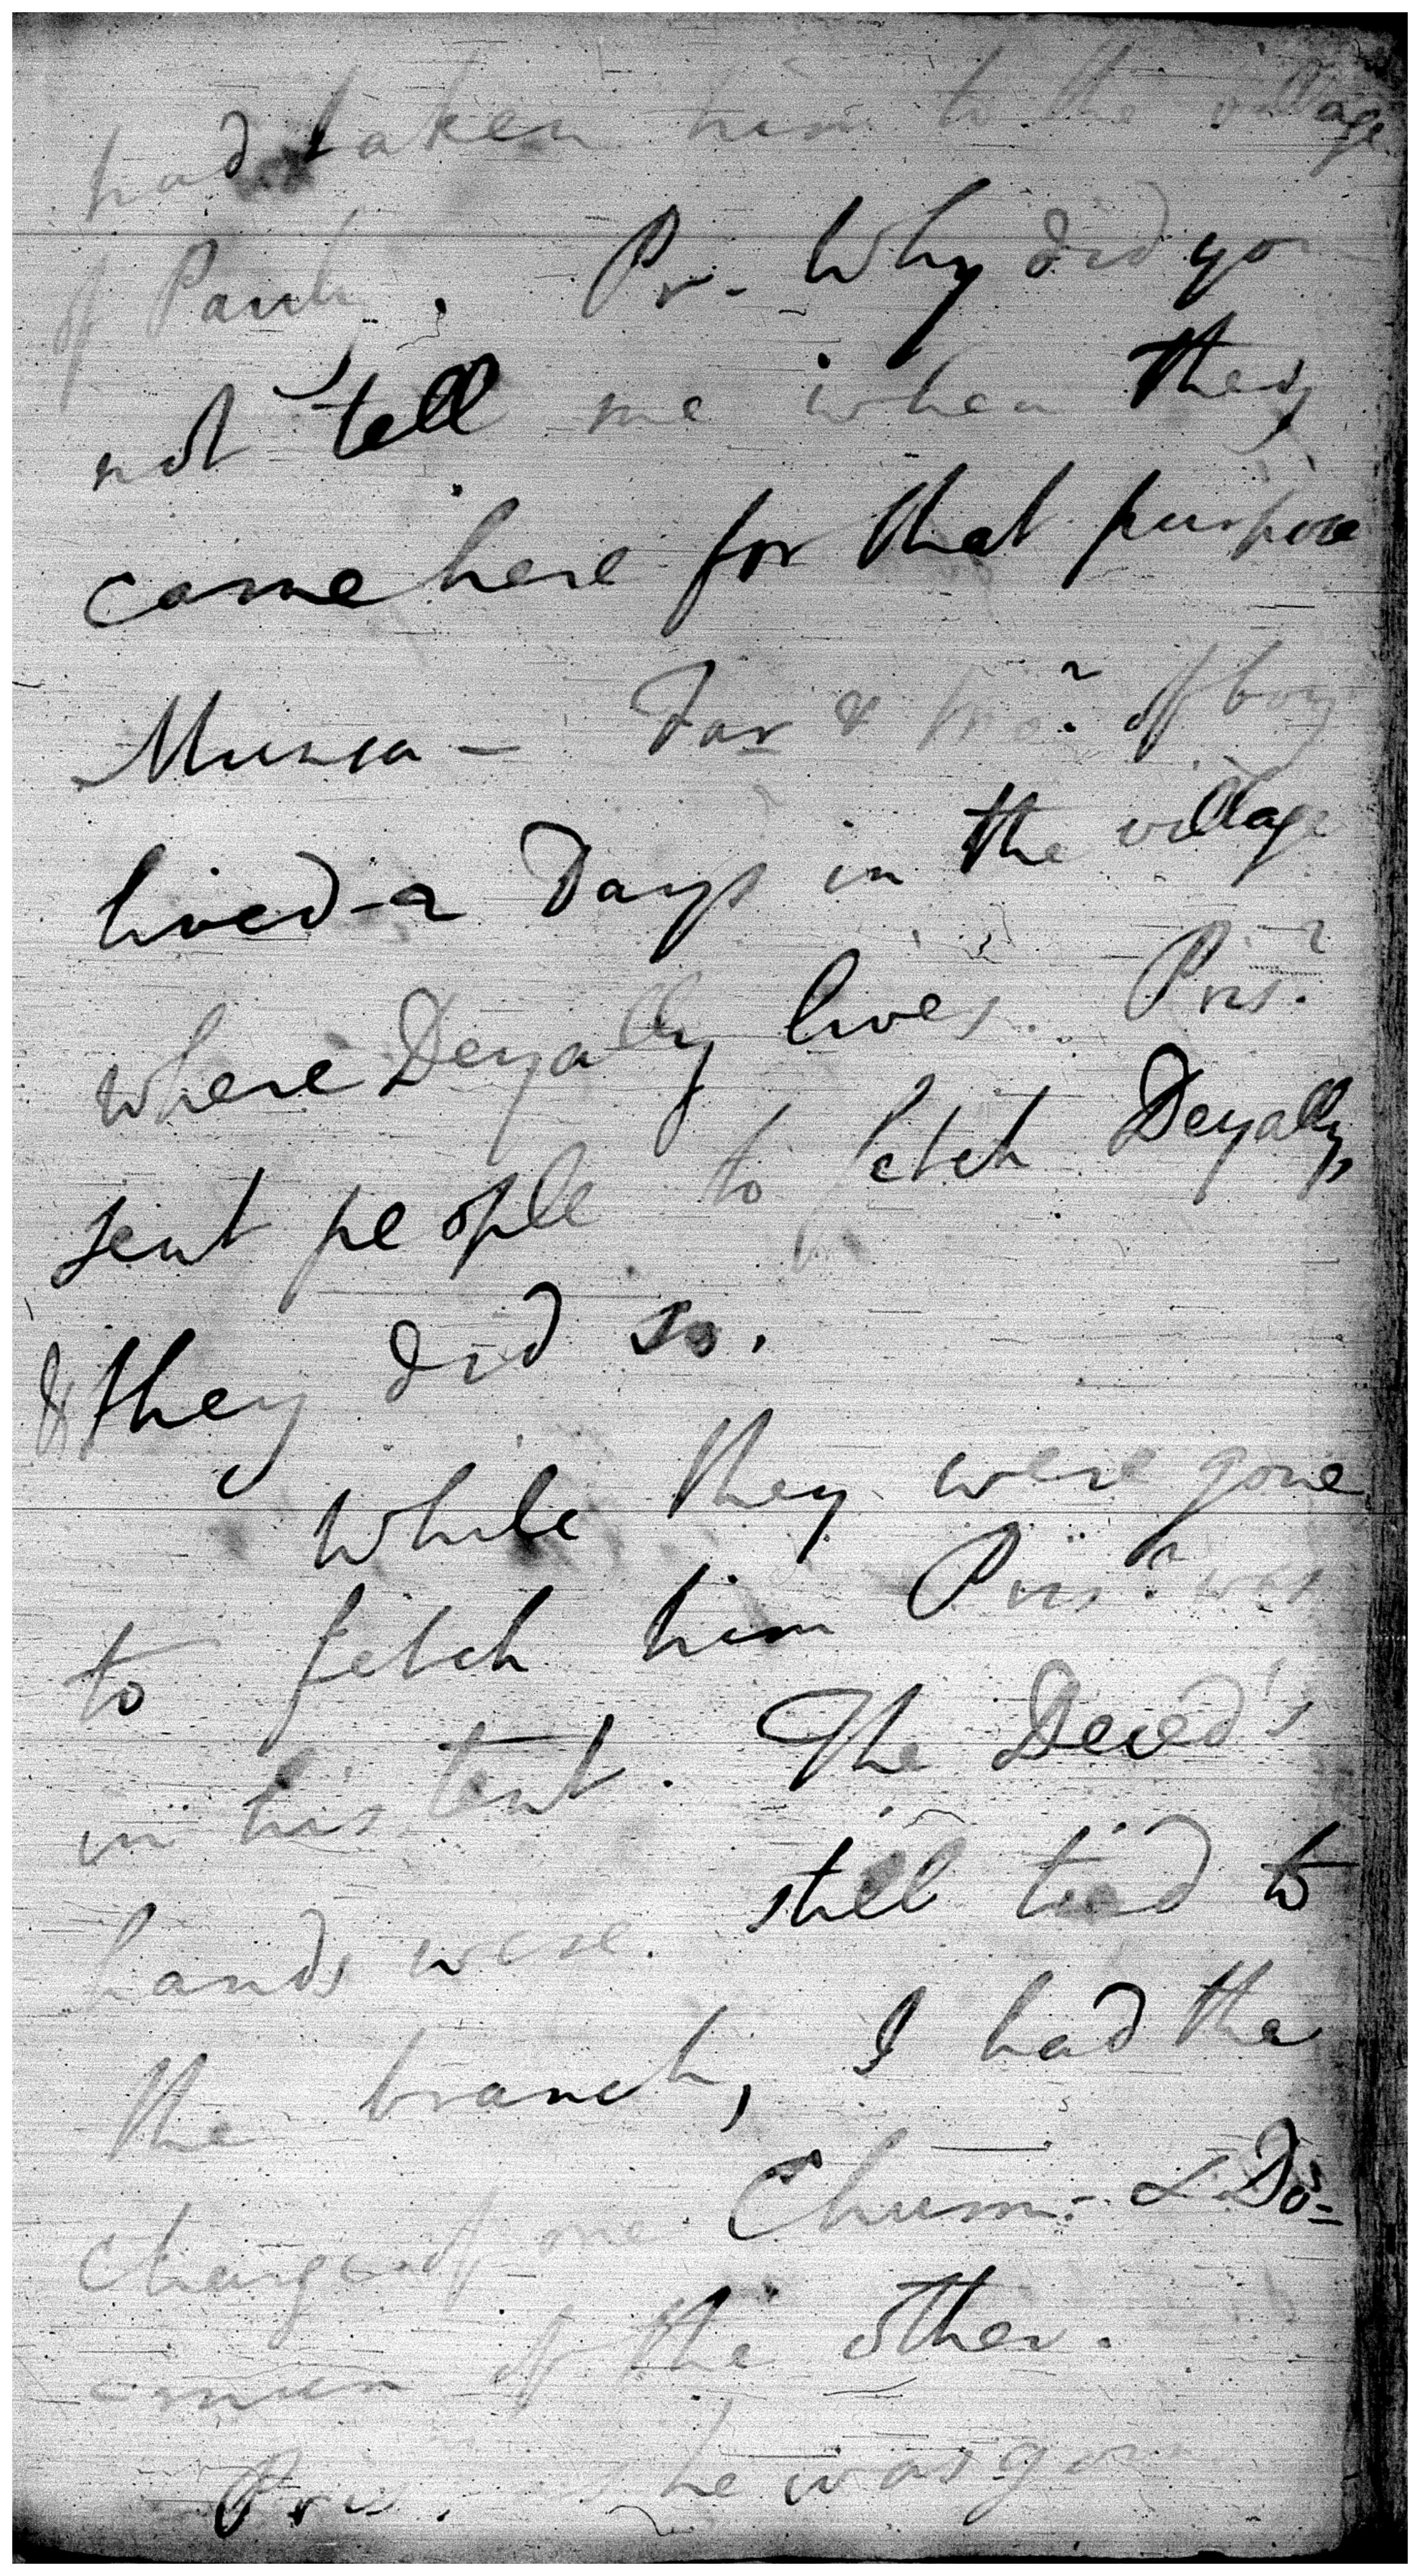 had taken him to the village
of Pauly. Pr. Why did you
not tell me when they
came here for that purpose
Munsa - Far & Mo.r of boy
lived - 2 Days in the village
where Deyally lives. Pris.r
sent people to fetch Deyally,
& they did so.
while they were gone
to fetch him Pris.r was
in his tent. The Deced's
hands were still tied to
the branch, I had the
charge of one Chum: & Do-
-man of the other.
Pris. as he was going